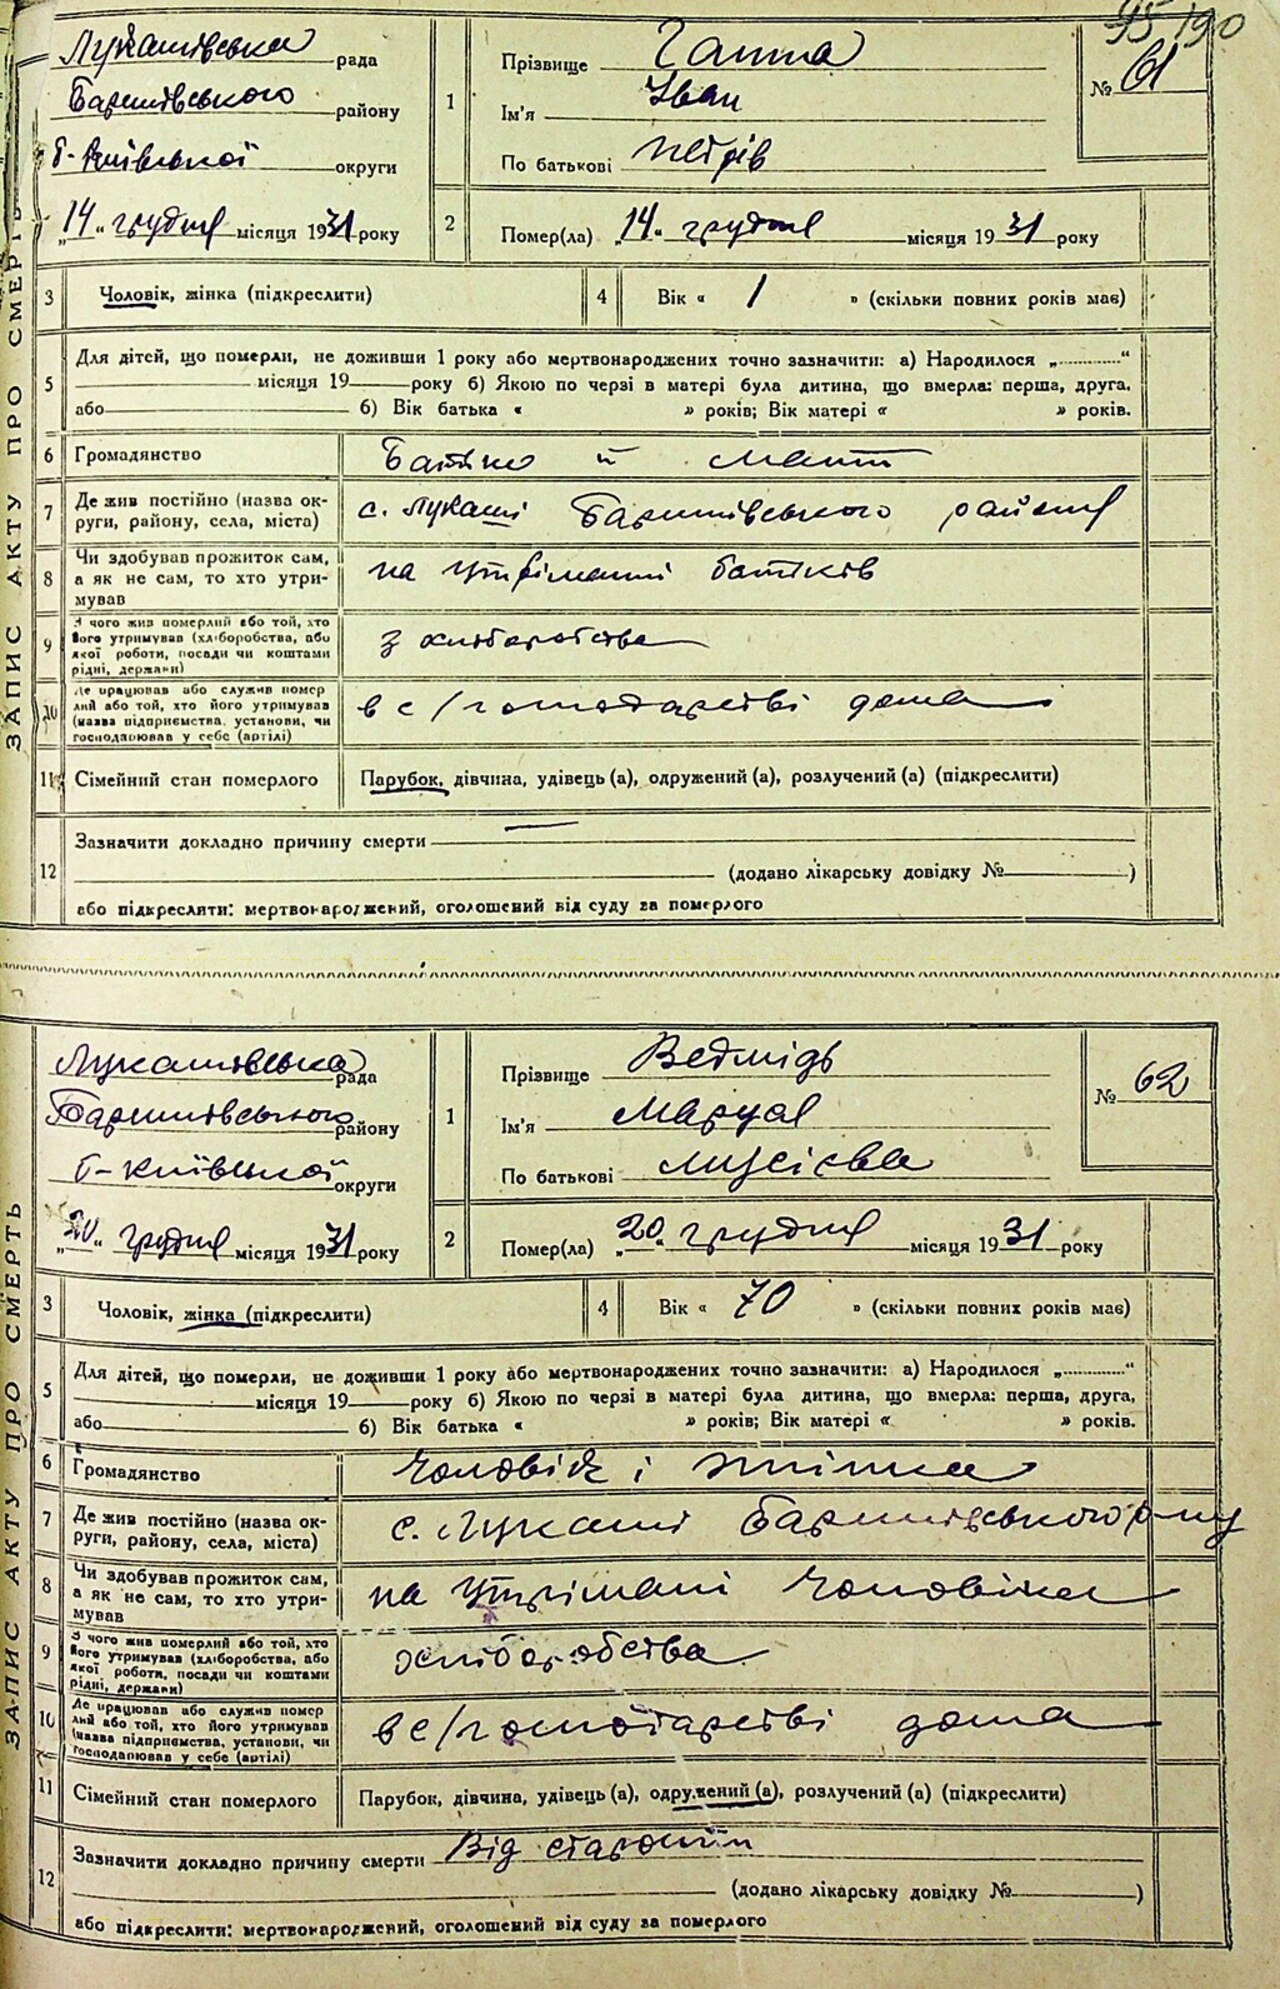 95 190
ЗАПИС АКТУ ПРО СМЕРТЬ
Лукашівська рада
Баришівського району
б-Київської округи
„14“ грудня місяця 1931 року
1
Прізвище
Ім'я Іван
По батькові Петрів
№ 61
2
Помер(ла) „14“ грудня місяця 1931 року
3 Чоловік, жінка (підкреслити)
4 Вік « 1 » (скільки повних років має)
5 Для дітей, що померли, не доживши 1 року або мертвонароджених точно зазначити: а) Народилося „............“
місяця 19 року б) Якою по черзі в матері була дитина, що вмерла: перша, друга.
або б) Вік батька « » років; Вік матері « » років.
6 Громадянство Батько й мати
7 Де жив постійно (назва ок-
руги, району, села, міста)
с. Лукаші Баришівського району
8 Чи здобував прожиток сам,
а як не сам, то хто утри-
мував
на утріманні батьків
9 З чого жив померлий або той, хто
його утримував (хліборобства, або
якої роботи, посади чи коштами
рідні, держави)
з хліборобства
10 Де працював або служив помер
лий або той, хто його утримував
(назва підприємства, установи, чи
господарював у себе (артілі)
в с/господарстві дома
11 Сімейний стан померлого
Парубок, дівчина, удівець (а), одружений (а), розлучений (а) (підкреслити)
12 Зазначити докладно причину смерти —
(додано лікарську довідку № )
або підкреслити: мертвонароджений, оголошений від суду за померлого
ЗАПИС АКТУ ПРО СМЕРТЬ
Лукашівська рада
Баришівського району
б-Київської округи
„20“ грудня місяця 1931 року
1
Прізвище Ведмідь
Ім'я Маруся
По батькові
№ 62
2
Помер(ла) „20“ грудня місяця 1931 року
3 Чоловік, жінка (підкреслити)
4 Вік « 70 » (скільки повних років має)
5 Для дітей, що померли, не доживши 1 року або мертвонароджених точно зазначити: а) Народилося „............“
місяця 19 року б) Якою по черзі в матері була дитина, що вмерла: перша, друга,
або б) Вік батька « » років; Вік матері « » років.
6 Громадянство Чоловік і жінка
7 Де жив постійно (назва ок-
руги, району, села, міста)
с. Лукаші Баришівського р-ну
8 Чи здобував прожиток сам,
а як не сам, то хто утри-
мував
на утрімані чоловіка
9 З чого жив померлий або той, хто
його утримував (хліборобства, або
якої роботи, посади чи коштами
рідні, держави)
хліборобства
10 Де працював або служив помер
лий або той, хто його утримував
(назва підприємства, установи, чи
господарював у себе (артілі)
в с/господарстві дома
11 Сімейний стан померлого
Парубок, дівчина, удівець (а), одружений (а), розлучений (а) (підкреслити)
12 Зазначити докладно причину смерти Від старости
(додано лікарську довідку № )
або підкреслити: мертвонароджений, оголошений від суду за померлого